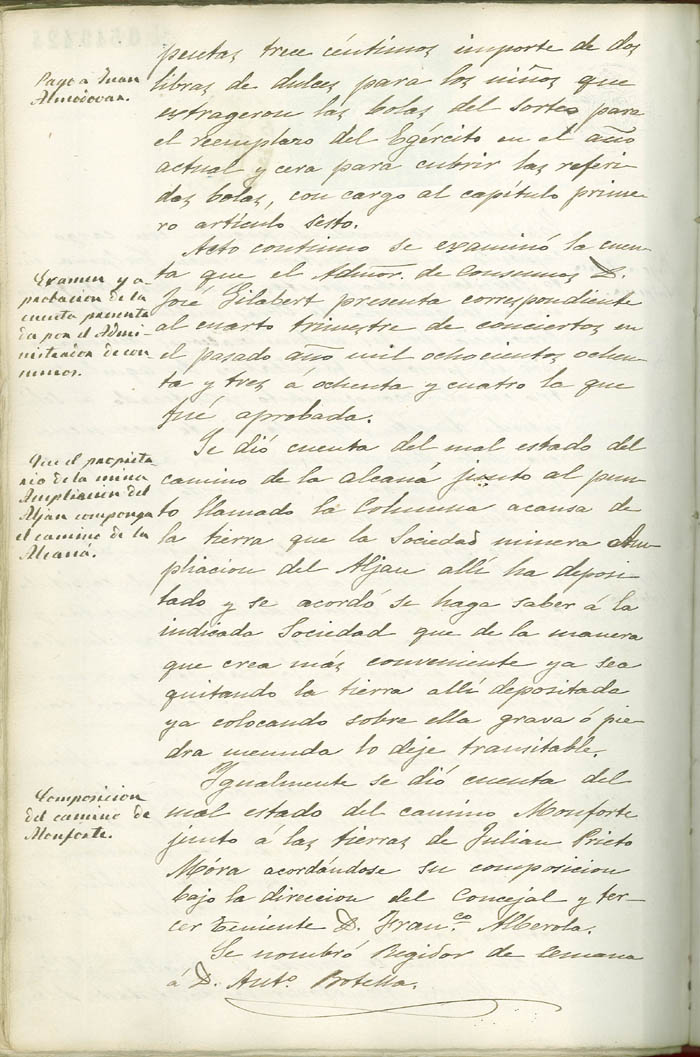 pesetas trece céntimos importe de dos
Pago a Juan
Almodovar.
libras de dulces para los niños que
extrageron las bolas del sorteo para
el reemplazo del Egército en el año
actual y cera para cubrir las referi-
das bolas, con cargo al capítulo prime-
ro artículo sesto.
Acto continuo se examinó la cuen-
Examen y a-
probacion de la
cuenta presenta
da por el Admi-
nistracion de con
sumos.
ta que el Admor. de Consumos D.
José Gilabert presenta correspondiente
al cuarto trimestre de conciertos en
el pasado año mil ochocientos ochen-
ta y tres á ochenta y cuatro la que
fué aprobada.
Se dió cuenta del mal estado del
Que el propieta
rio de la mina
Ampliacion del
Aljau componga
el camino de la
Alcaná.
camino de la alcaná junto al pun-
to llamado la Columna acausa de
la tierra que la Sociedad minera Am-
pliacion del Aljau allí ha deposi-
tado y se acordó se haga saber á la
indicada Sociedad que de la manera
que crea más conveniente ya sea
quitando la tierra allí depositada
ya colocando sobre ella grava ó pie-
dra menuda lo deje transitable.
Igualmente se dió cuenta del
Composicion
del camino de
Monforte.
mal estado del camino Monforte
junto á las tierras de Julian Prieto
Móra acordándose su composicion
bajo la direccion del Concejal y ter-
cer teniente D. Fran.co Alberola.
Se nombró Regidor de semana
á D. Ant.o Botella.